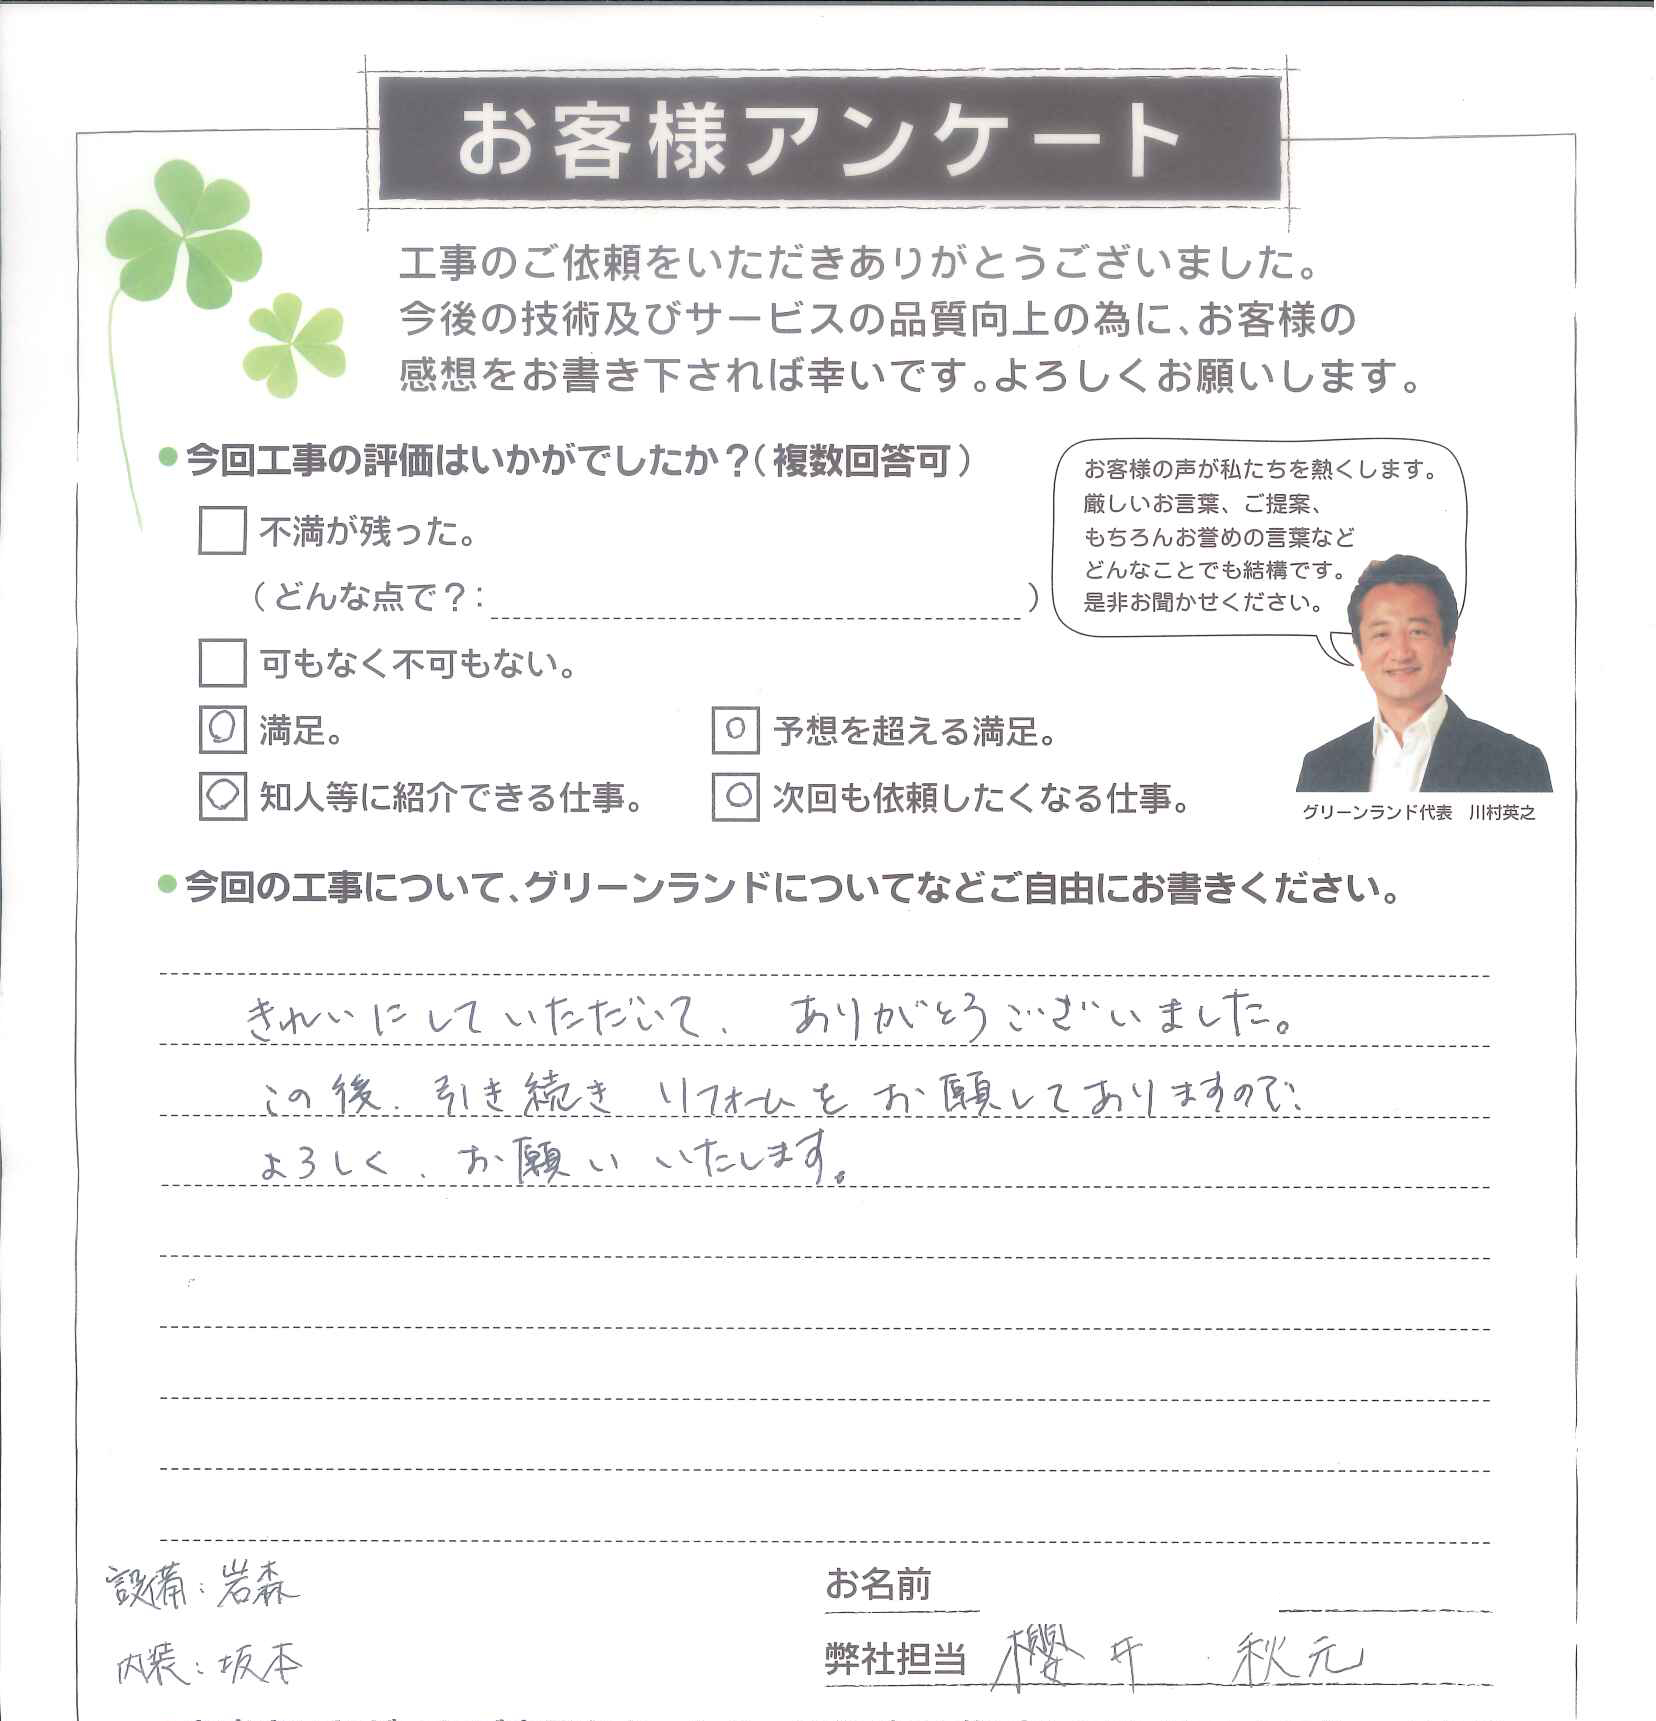 お客様アンケート
工事のご依頼をいただきありがとうございました。
今後の技術及びサービスの品質向上の為に、お客様の
感想をお書き下されば幸いです。よろしくお願いします。
●今回工事の評価はいかがでしたか？（複数回答可）
不満が残った。
（どんな点で？：　　　）
可もなく不可もない。
○ 満足。
○ 予想を超える満足。
○ 知人等に紹介できる仕事。
○ 次回も依頼したくなる仕事。
お客様の声が私たちを熱くします。
厳しいお言葉、ご提案、
もちろんお誉めの言葉など
どんなことでも結構です。
是非お聞かせください。
グリーンランド代表　川村英之
●今回の工事について、グリーンランドについてなどご自由にお書きください。
きれいにしていただいて、ありがとうございました。
この後、引き続きリフォームをお願してありますので、
よろしく、お願いいたします。
設備：岩森
内装：坂本
お名前
弊社担当 櫻井　秋元